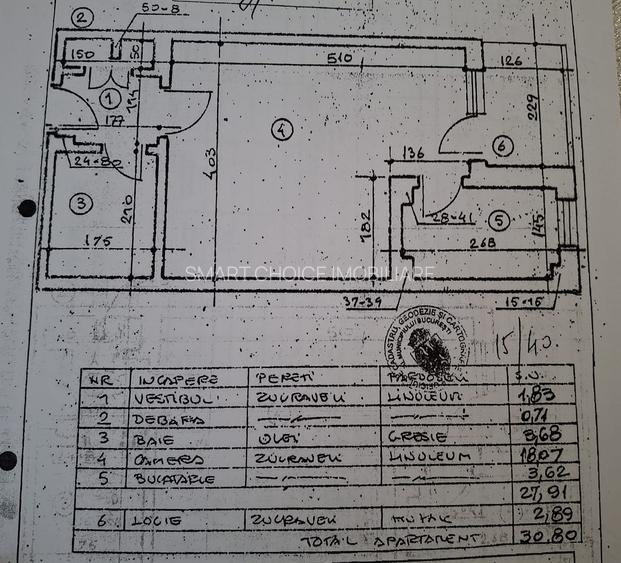 50-8
2
150
50
510
126
1
194
177
4
403
229
6
136
24-80
3
210
182
28-41
5
145
175
268
SMART CHOICE IMOBILIARE
37-39
15-15
CADASTRU, GEODEZIE SI CARTOGRAFIE
MUNICIPIULUI BUCURESTI
15/40.
NR INCAPERE PERETI PARDOSELI S.U.
1 VESTIBUL ZUGRAVELI LINOLEUM 1,83
2 DEBARA —"— —"— 0,71
3 BAIE ULEI GRESIE 3,68
4 CAMERA ZUGRAVELI LINOLEUM 18,07
5 BUCATARIE —"— —"— 3,62
27,91
6 LOGIE ZUGRAVELI 2,89
TOTAL APARTAMENT 30.80